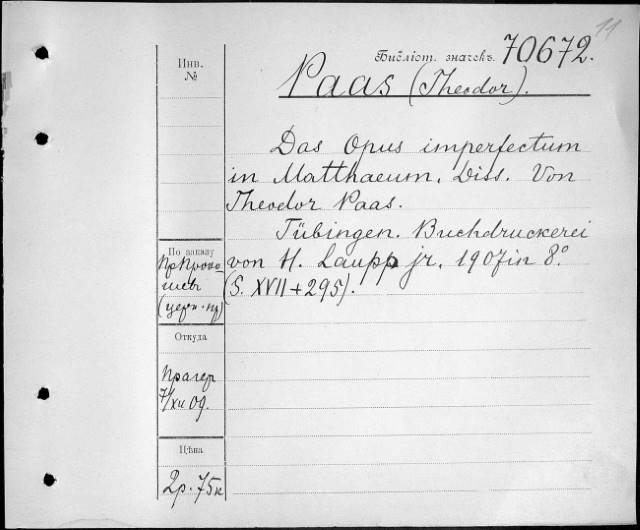 11
Библіот. значекъ. 70672.
Инв.
№
Paas (Theodor).
Das Opus imperfectum
in Matthaeum. Diss. Von
Theodor Paas.
Tübingen. Buchdruckerei
von H. Laupp jr. 1907 in 8°.
(S. XVII + 295).
По заказу
Пр. Проко-
шев
(церк. пр)
Откуда
Прагер
7/XII 09.
Цѣна
2р. 75к